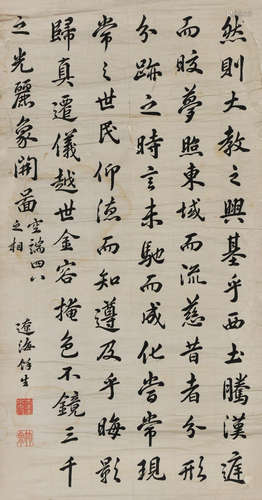 然則大教之興基乎西土騰漢庭
而皎夢照東域而流慈昔者分形
分跡之時言未馳而成化當常現
常之世民仰德而知遵及乎晦影
歸真遷儀越世金容掩色不鏡三千
之光麗象開圖
空端四八
之相
遼海 生